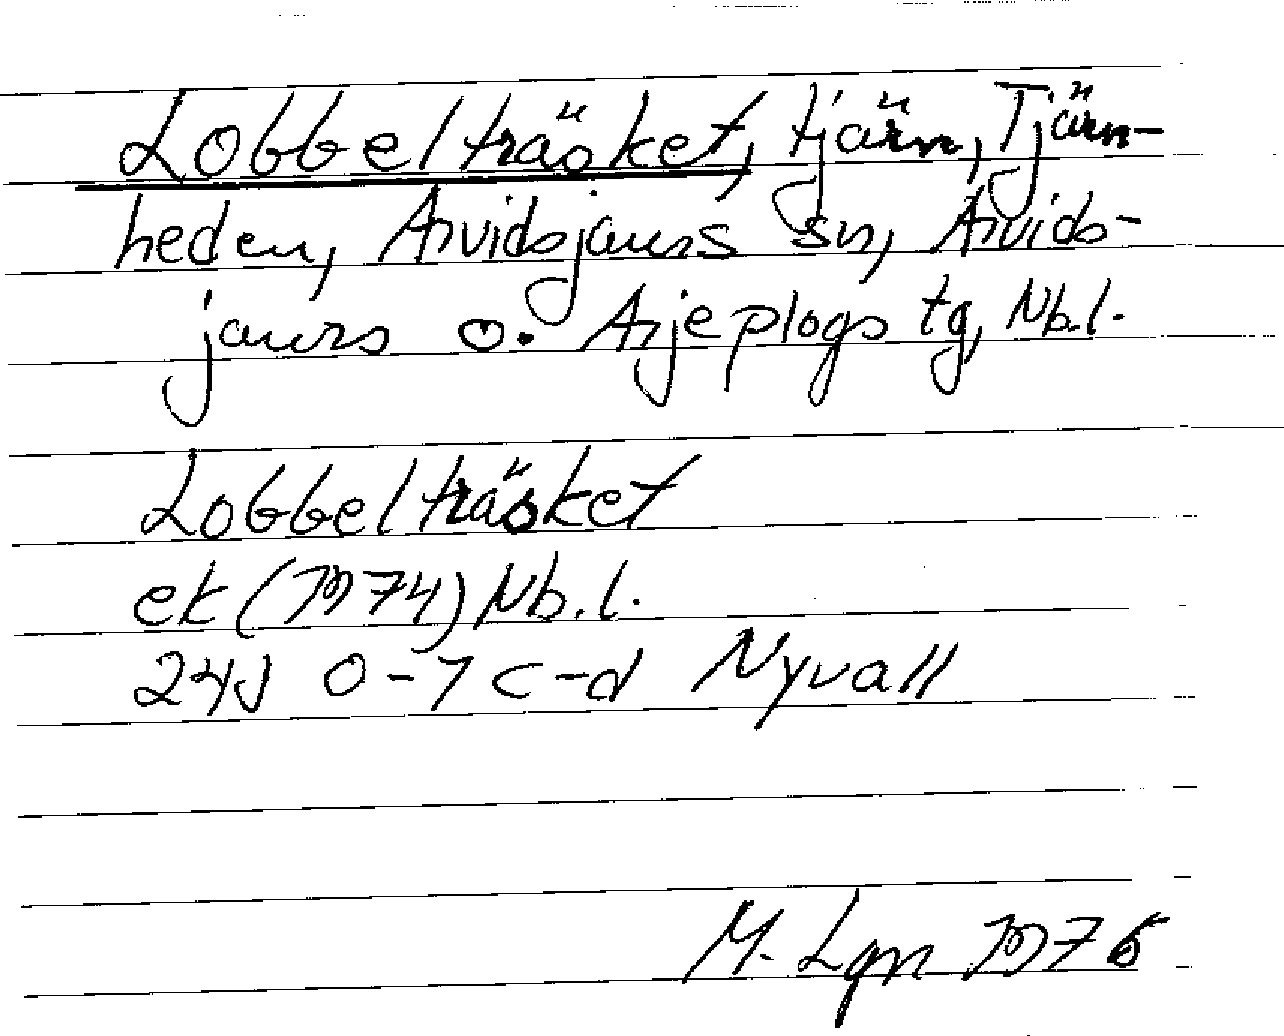 Lobbelträsket, tjärn, Tjärn-
heden, Arvidsjaurs sn, Arvids-
jaurs o. Arjeplogs tg, Nb.l.
Lobbelträsket
ek (1974) Nb.l.
24J 0-1 c-d Nyvall
M. Lgn 1976